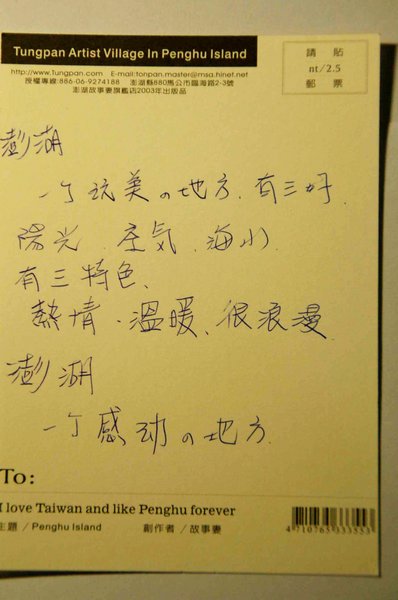 Tungpan Artist Village In Penghu Island
http://www.Tungpan.com E-mail:tonpan.master@msa.hinet.net
授權專線:886-06-9274188 澎湖縣880馬公市臨海路2-3號
澎湖故事妻旗艦店2003年出版品
請 貼
nt/2.5
郵 票
澎湖
一个玩美の地方.有三好.
陽光.空気.海水.
有三特色、
熱情、溫暖、很浪漫.
澎湖
一个感动の地方.
To:
I love Taiwan and like Penghu forever
主題/Penghu Island 創作者/故事妻
4 710765 333553